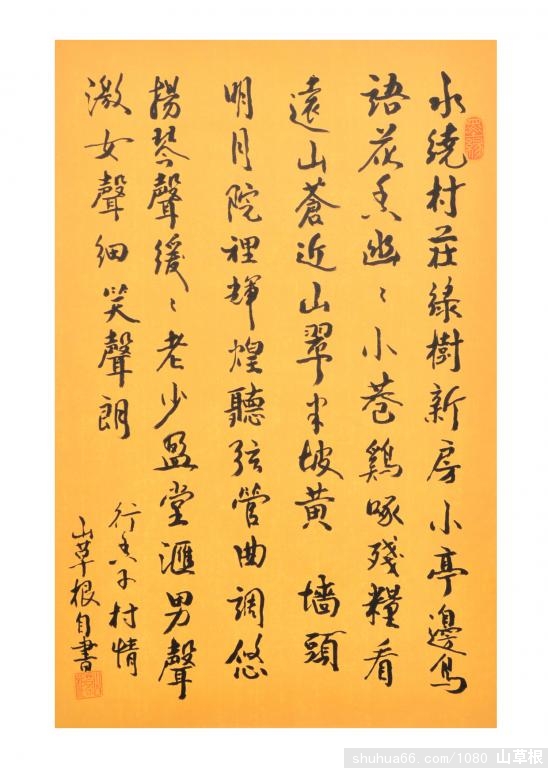 水繞村莊綠樹新房小亭邊鳥
語花香幽幽小巷鷄啄殘糧看
遠山蒼近山翠半坡黄 墙頭
明月院裡輝煌聽弦管曲調悠
揚琴聲緩緩老少盈堂滙男聲
激女聲細笑聲朗
行香子村情
山草根自書
shuhua66.com/1080 山草根